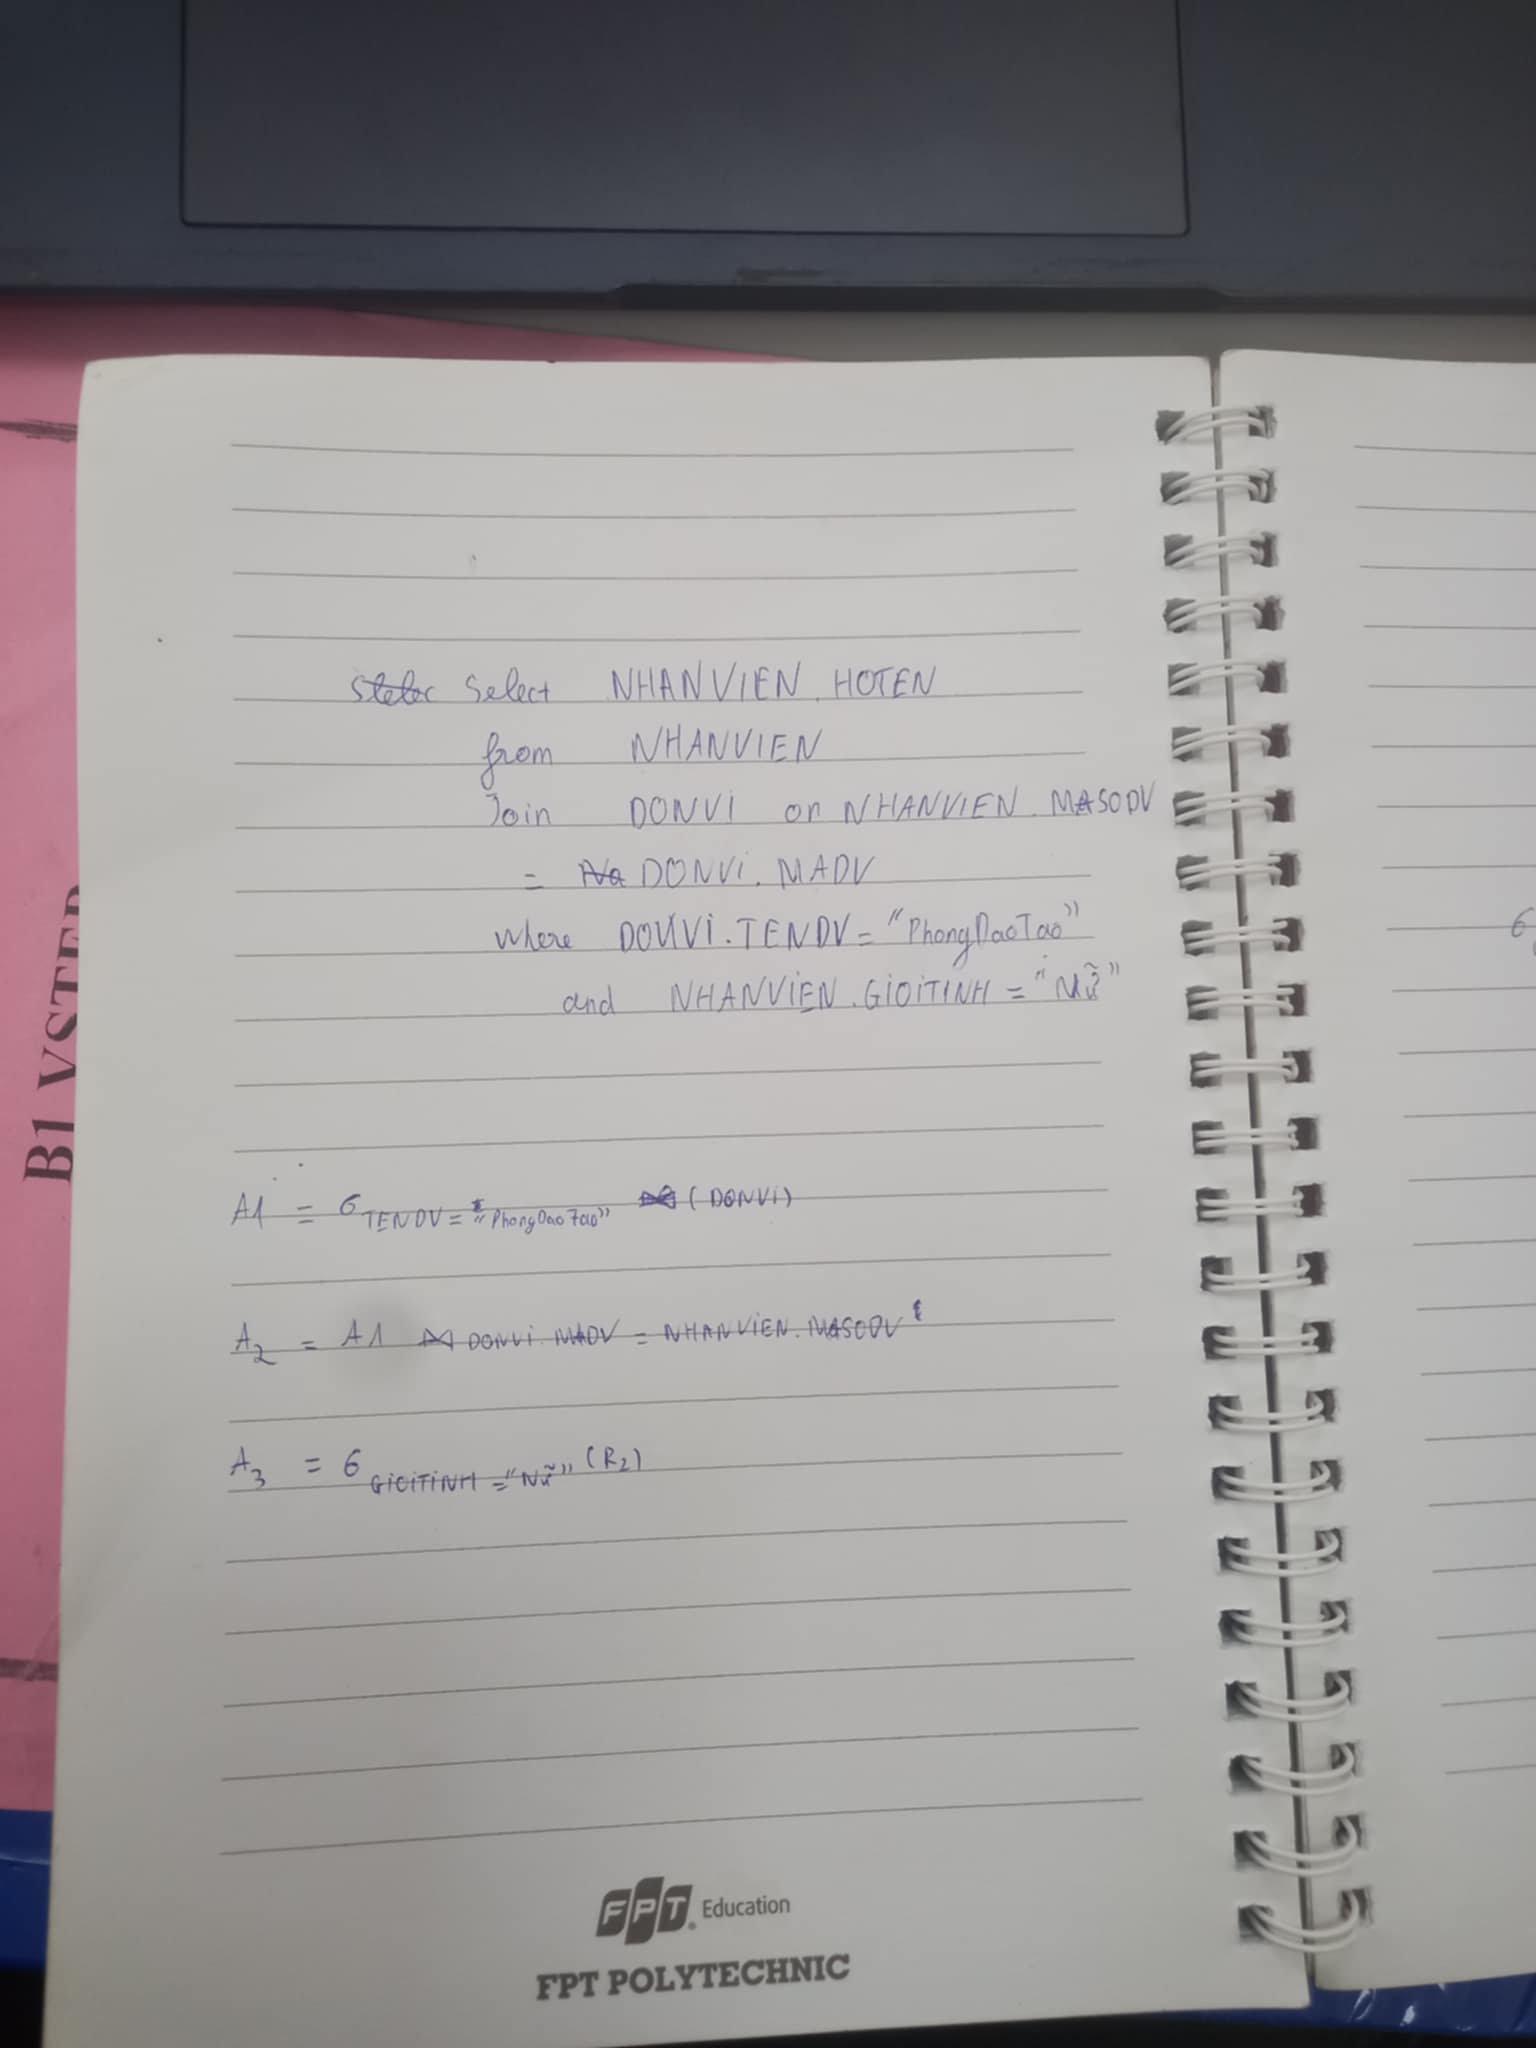 Select NHANVIEN.HOTEN
from NHANVIEN
Join DONVI on NHANVIEN.MASODV
= DONVI.MADV
where DONVI.TENDV = "PhongDaoTao"
and NHANVIEN.GIOITINH = "Nữ"
A1 = σ TENDV = "PhongDaoTao" (DONVI)
A2 = A1 ⋈ DONVI.MADV = NHANVIEN.MASODV
A3 = σ GIOITINH = "Nữ" (R2)
B1 VSTEP
FPT Education
FPT POLYTECHNIC